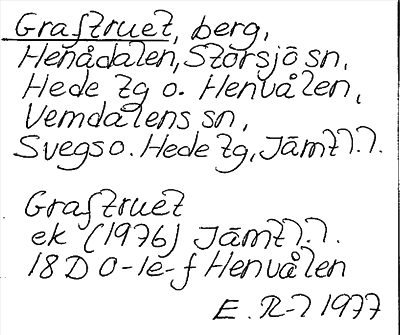 Grafstruet, berg,
Henådalen, Storsjö sn,
Hede tg o. Henvålen,
Vemdalens sn,
Svegs o. Hede tg, Jämtl.l.
Grafstruet
ek (1976) Jämtl.l.
18D 0-1e-f Henvålen
E. R-l 1977